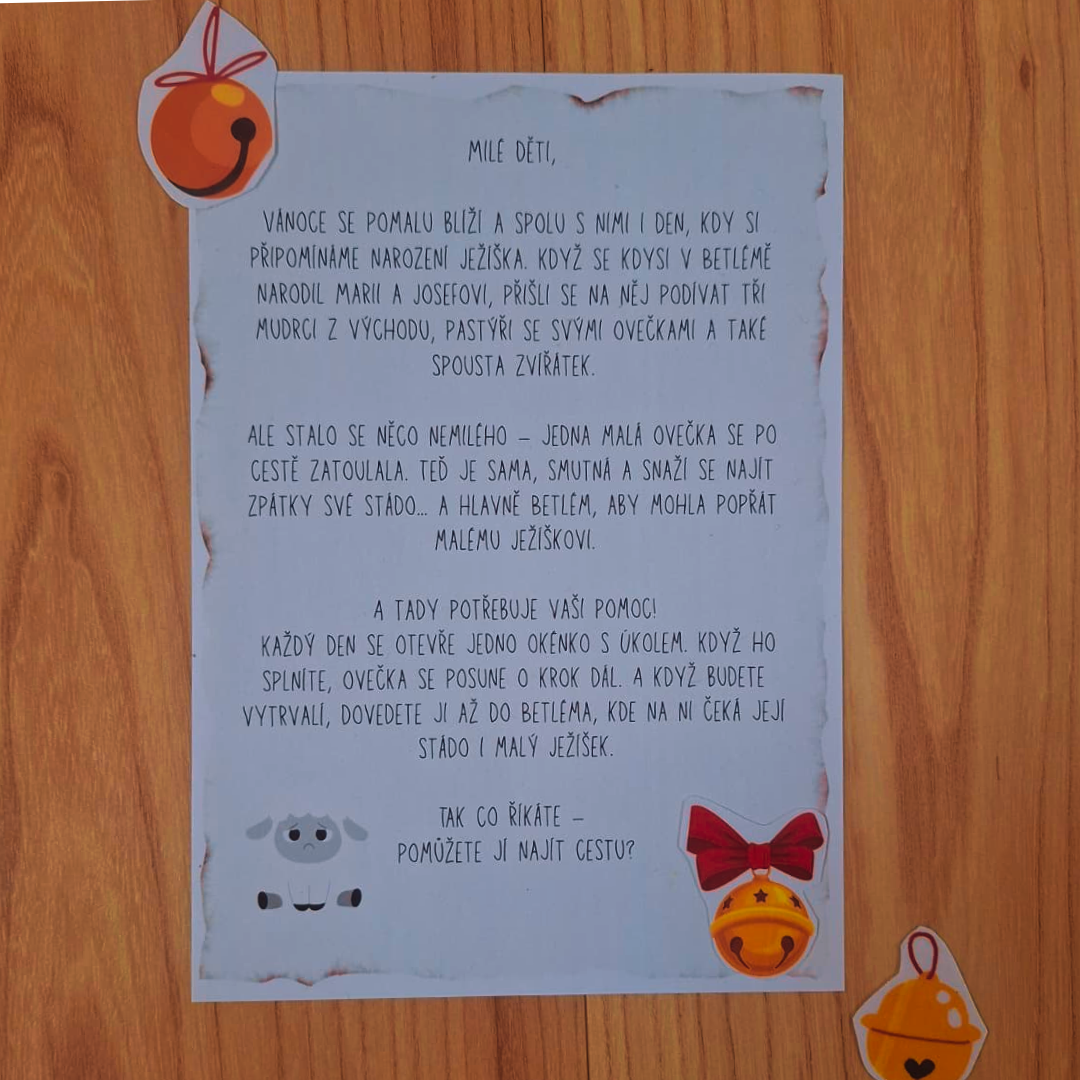 MILÉ DĚTI,
VÁNOCE SE POMALU BLÍŽÍ A SPOLU S NIMI I DEN, KDY SI
PŘIPOMÍNÁME NAROZENÍ JEŽÍŠKA. KDYŽ SE KDYSI V BETLÉMĚ
NARODIL MARII A JOSEFOVI, PŘIŠLI SE NA NĚJ PODÍVAT TŘI
MUDRCI Z VÝCHODU, PASTÝŘI SE SVÝMI OVEČKAMI A TAKÉ
SPOUSTA ZVÍŘÁTEK.
ALE STALO SE NĚCO NEMILÉHO – JEDNA MALÁ OVEČKA SE PO
CESTĚ ZATOULALA. TEĎ JE SAMA, SMUTNÁ A SNAŽÍ SE NAJÍT
ZPÁTKY SVÉ STÁDO... A HLAVNĚ BETLÉM, ABY MOHLA POPŘÁT
MALÉMU JEŽÍŠKOVI.
A TADY POTŘEBUJE VAŠI POMOC!
KAŽDÝ DEN SE OTEVŘE JEDNO OKÉNKO S ÚKOLEM. KDYŽ HO
SPLNÍTE, OVEČKA SE POSUNE O KROK DÁL. A KDYŽ BUDETE
VYTRVALÍ, DOVEDETE JI AŽ DO BETLÉMA, KDE NA NI ČEKÁ JEJÍ
STÁDO I MALÝ JEŽÍŠEK.
TAK CO ŘÍKÁTE –
POMŮŽETE JÍ NAJÍT CESTU?